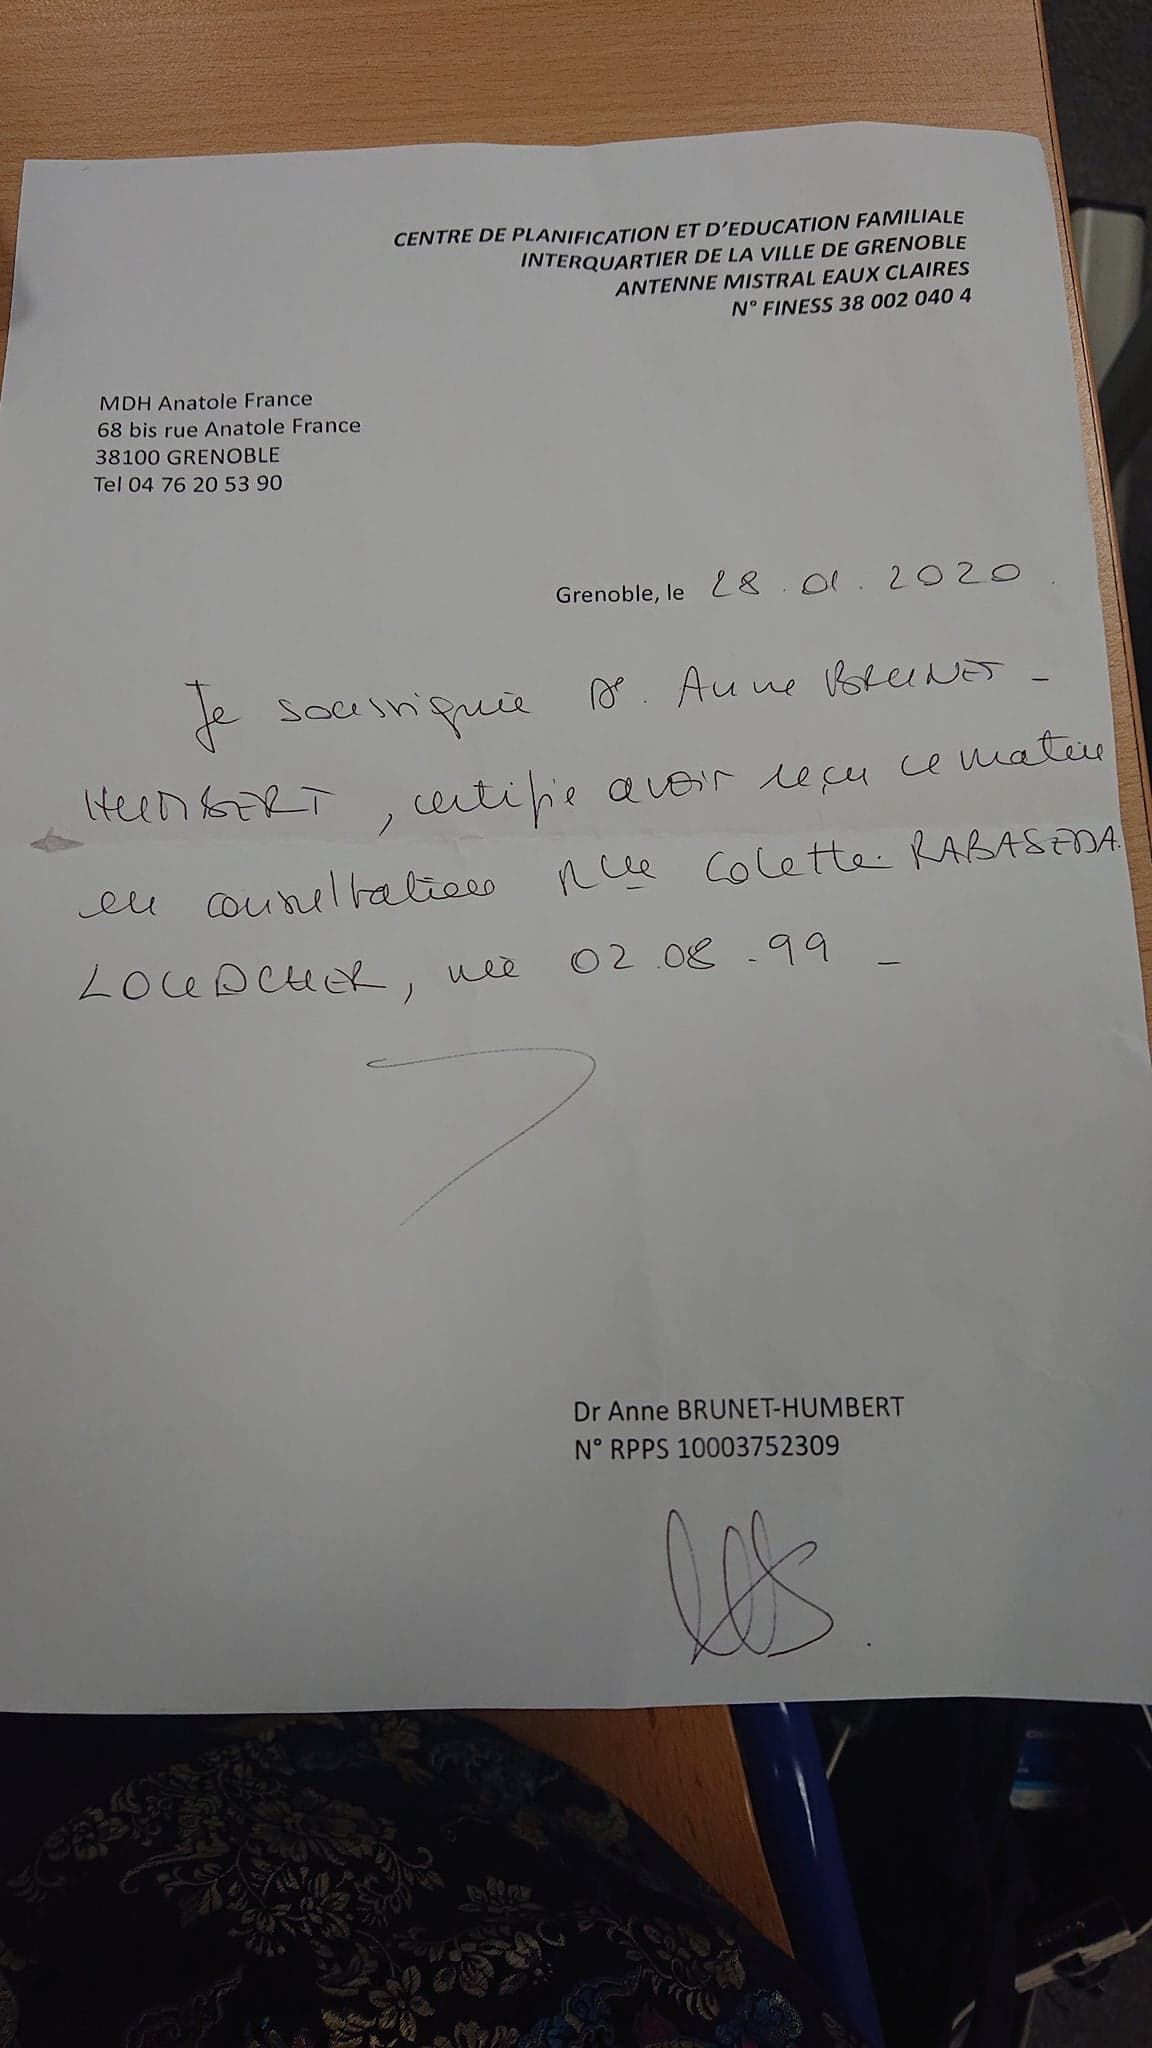 CENTRE DE PLANIFICATION ET D'EDUCATION FAMILIALE
INTERQUARTIER DE LA VILLE DE GRENOBLE
ANTENNE MISTRAL EAUX CLAIRES
N° FINESS 38 002 040 4
MDH Anatole France
68 bis rue Anatole France
38100 GRENOBLE
Tel 04 76 20 53 90
Grenoble, le 28.01.2020.
Je soussignée Dr. Anne BRUNET-
HUMBERT, certifie avoir reçu ce matin
en consultation Mlle Colette RABASEDA
LOUDCHER, née 02.08.99 -
Dr Anne BRUNET-HUMBERT
N° RPPS 10003752309